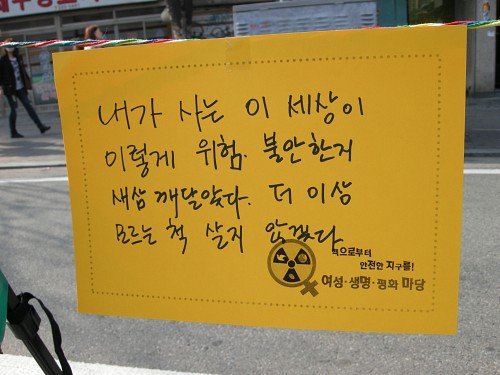 내가 사는 이 세상이
이렇게 위험. 불안한지
새삼 깨달았다. 더 이상
모르는 척 살지 않겠다.
핵으로부터
안전한 지구를!
여성·생명·평화 마당